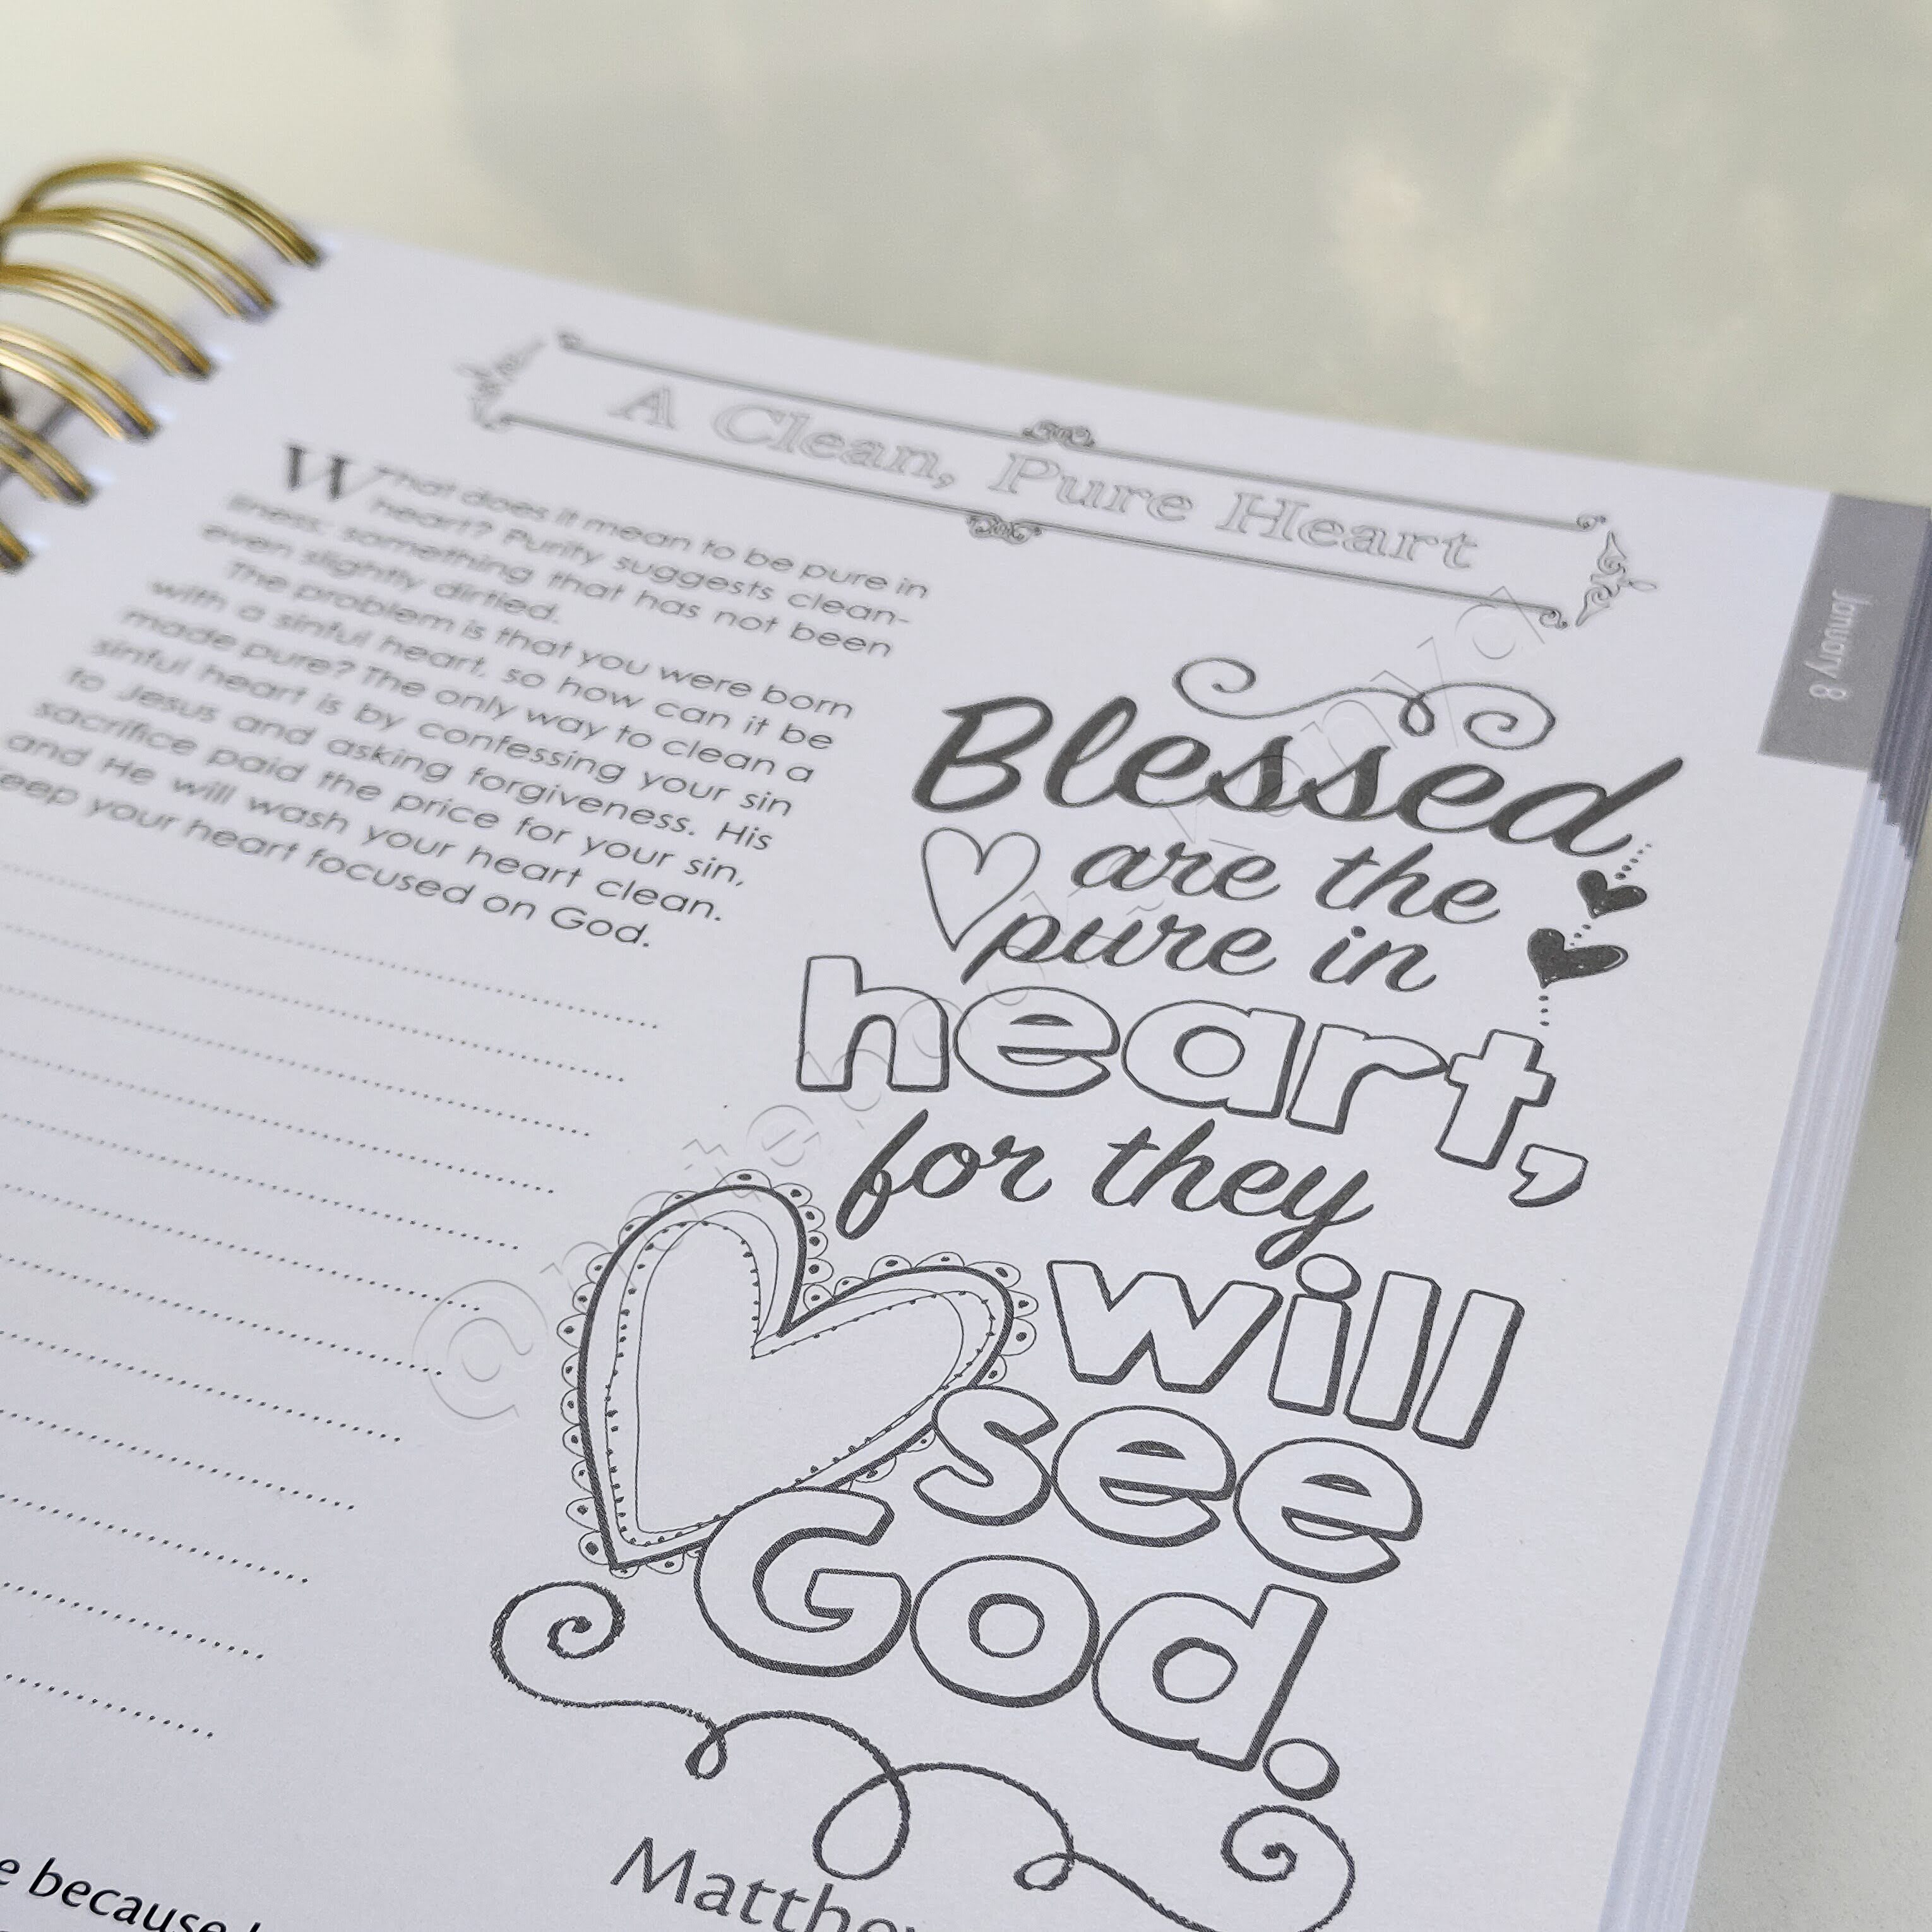 A Clean, Pure Heart
What does it mean to be pure in
heart? Purity suggests clean-
liness; something that has not been
even slightly dirtied.
The problem is that you were born
with a sinful heart, so how can it be
made pure? The only way to clean a
sinful heart is by confessing your sin
to Jesus and asking forgiveness. His
sacrifice paid the price for your sin,
and He will wash your heart clean.
your heart focused on God.
January 8
Blessed
are the
pure in
heart,
for they
will
see
God.
because